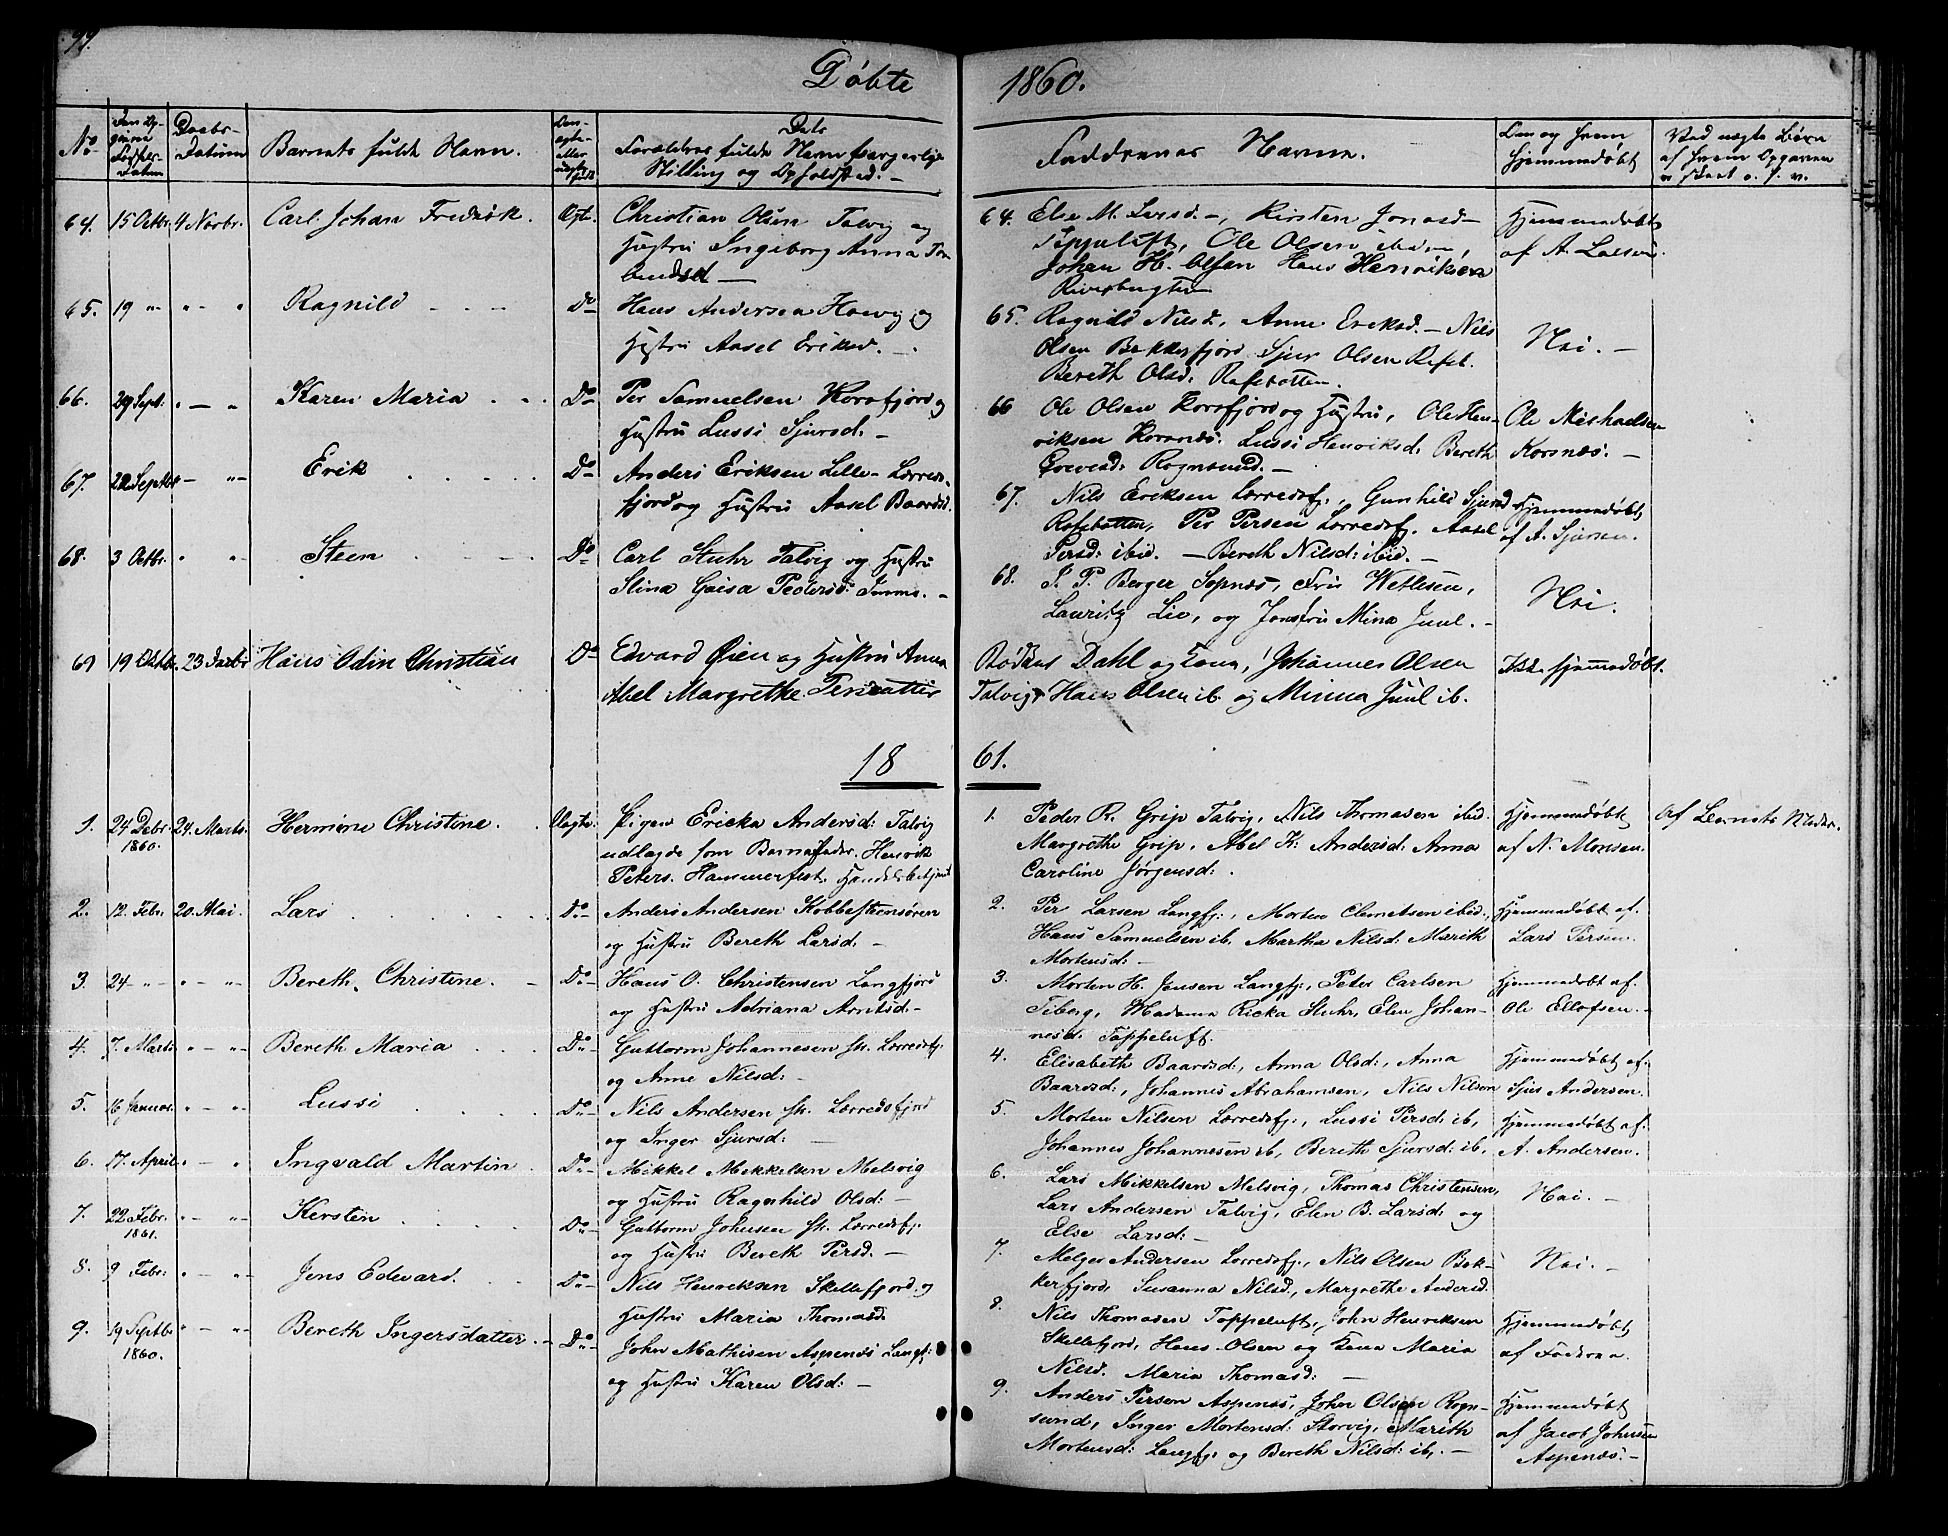 99.
Døbte 1860.
No Den Opgivne Fødsels-Datum Daabs-Datum Barnets fulde Navn. Om ægte eller uægte født Forældres fulde Navn borgerlige Stilling og Opholdsted. —
Faddernes Navne. Om og hvem hjemmedøbt Ved uægte Børn af hvem Opgaven er skeet o. s. v.
64. 15 Octbr. 4 Novbr. Carl Johan Fredrik. Ægt. Christian Olsen Talvig og
Hustru Ingeborg Anna
64. Else M. Larsd. —, Kirsten Jonasd —
Toppeluft, Ole Olsen ibidem,
Johan H. Olsen Hans Henriksen
Hjemmedøbt
af A. Larsen.
65. 19 " " " " Ragnild Do Hans Andersen og
Hustru Aasel Eriksd. —
65. Ragnild Nilsd., Anne Eriksd. — Nils
Olsen Bekkerfjord Sjur Olsen Refsb.
Bereth Olsd. Refsbotten.
Nei. —
66. 29 Sept. " — " Karen Maria Do Per Samuelsen Korsfjord og
Hustru Lussi Sjursd. —
66 Ole Olsen Korsfjord og Hustru, Ole Hen-
riksen Korsnæs. Lussi Henriksd. Bereth
Rognsund. —
Ole Michaelsen
Korsnæs. —
67. 22 Septbr — " Erik Do Anders Eriksen Lille-Lærreds-
fjord og Hustru Aasel Baardsd.
67. Nils Eriksen Lærredsfj., Gunhild Sjursd
Refsbotten, Per Persen Lærredsf. Aasel
Persd: ibid. — Bereth Nilsd: ibid. —
Hjemmedøbt
af A. Sjursen.
68. 3 Octbr. " " Steen Do Carl Stuhr Talvig og Hustru
Stina Gjæsa Pedersd:
68. S. P. Berger Sopnæs, Fru Wetlesen,
Lauritz Lie, og Jomfru Mina Juul. —
Nei.
69 19 Oktbr. 23 Decbr Hans Odin Christian Do Edvard Øien og Hustru Anna
Abel Margrethe Persdatter
Rødkus Dahl og Kone, Johannes Olsen
Talvig, Hans Olsen ib. og Minna Juul ib.
Ikke hjemmedøbt.
1861.
1. 24 Debr. 1860. 24. Marts. Hermine Christine. Uægte. Pigen Ericka Andersd: Talvig
udlagde som Barnefader Henrik
Peters. Hammerfest. Handelsbetjent
1. Peder R. Grip Talvig, Nils Thomasen ibid.
Margrethe Grip, Abel K. Andersd: Anna
Caroline Jørgensd: .
Hjemmedøbt
af N. Monsen.
Af Barnets Moder.
2. 12. Febr. 20. Mai. Lars Do Anders Andersen Kobbestensøren
og Hustru Bereth Larsd. —
2. Per Larsen Langfj:, Morten Clemetsen ibid.,
Hans Samuelsen ib. Martha Nilsd: Marith
Mortensd: —
Hjemmedøbt af.
Lars Persen.
3. 24 — " — " — " Bereth Christine. — Do Hans O. Christensen Langfjord
og Hustru Adriana Arntsd: —
3. Morten H. Jensen Langfj:, Peter Carlsen
Tiberg, Madame Ricka Stuhr, Elen Johan-
nesd: Toppeluft.
Hjemmedøbt af.
Ole Ellofsen. —
4. 7. Marts " — " Bereth Maria Do Guttorm Johannesen St. Lærredsfj.
og Anne Nilsd: —
4. Elisabeth Baardsd:, Anna Olsd:, Anna
Baardsd:, Johannes Abrahamsen, Nils Nilsen
Hjemmedøbt af.
Sjur Andersen.
5. 16 Januar. " — " Lussi Do Nils Andersen St. Lærredsfjord
og Inger Sjursd: —
5. Morten Nilsen Lærredsfj:, Lussi Persd: ib,
Johannes Johannesen ib, Bereth Sjursd: ib,
Hjemmedøbt af:
A. Andersen.
6. 17. April. " — " Ingvald Martin Do Mikkel Mikkelsen Melsvig
og Hustru Ragnhild Olsd: —
6. Lars Mikkelsen Melsvig, Thomas Christensen,
Lars Andersen Talvig, Elen B. Larsd: og
Else Larsd: —
Nei. —
7. 22 Febr. 1861. " — " Kersten Do Guttorm Johnsen St. Lærredsfj.
og Hustru Bereth Persd. —
7. Melger Andersen Lærredsfj:, Nils Olsen Bek-
kerfjord, Susanna Nilsd., Margrethe Andersd.
Nei. —
8. 9 Febr: " — " Jens Edvard. Do Nils Henriksen Skillefjord. og
Hustru Maria Thomasd.
8. Nils Thomasen Toppeluft, John Henriksen
Skillefjord, Hans Olsen og Kona Maria
Nilsd. Maria Thomasd: —
Hjemmedøbt
af Faderen.
9. 19 Septbr 1860. " — " Bereth Ingersdatter. — Do John Mathisen Aspenæs Langf:
og Hustru Karen Olsd: —
9. Anders Persen Aspenæs, John Olsen Rogn-
sund, Inger Mortensd: Storvig, Marith
Mortensd: Langfj: og Bereth Nilsd: ib, —
Hjemmedøbt
af Jacob Johnsen
Aspenæs: —